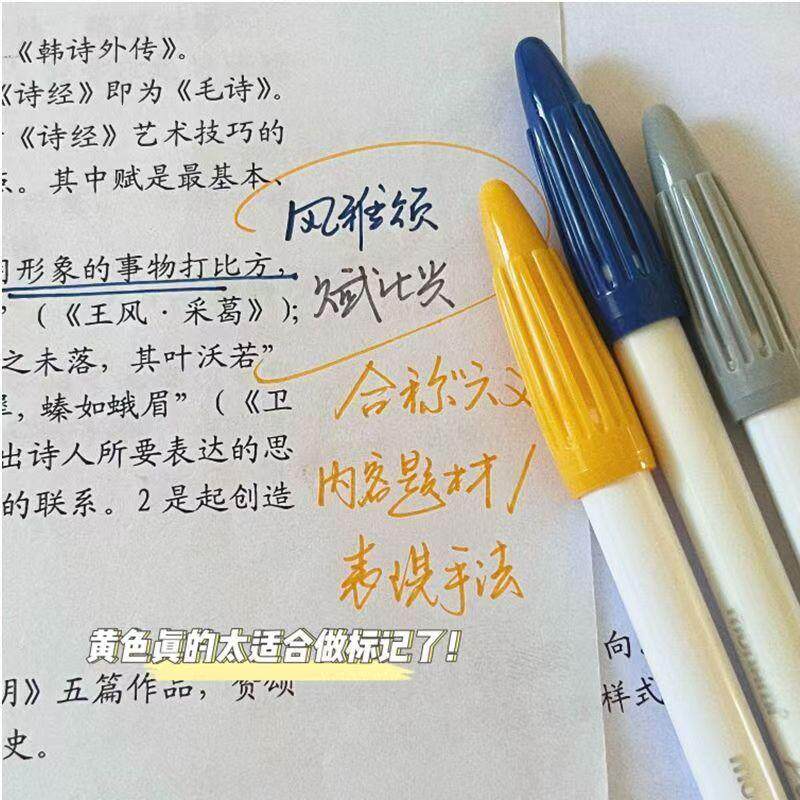 《韩诗外传》。
《诗经》即为《毛诗》。
《诗经》艺术技巧的
。其中赋是最基本、
形象的事物打比方，
”（《王风·采葛》）；
之未落，其叶沃若”
，螓如蛾眉”（《卫
出诗人所要表达的思
的联系。2是起创造
风雅颂
赋比兴
合称六义
内容题材/
表现手法
黄色真的太适合做标记了！
》五篇作品，赞颂
史。
向
样式